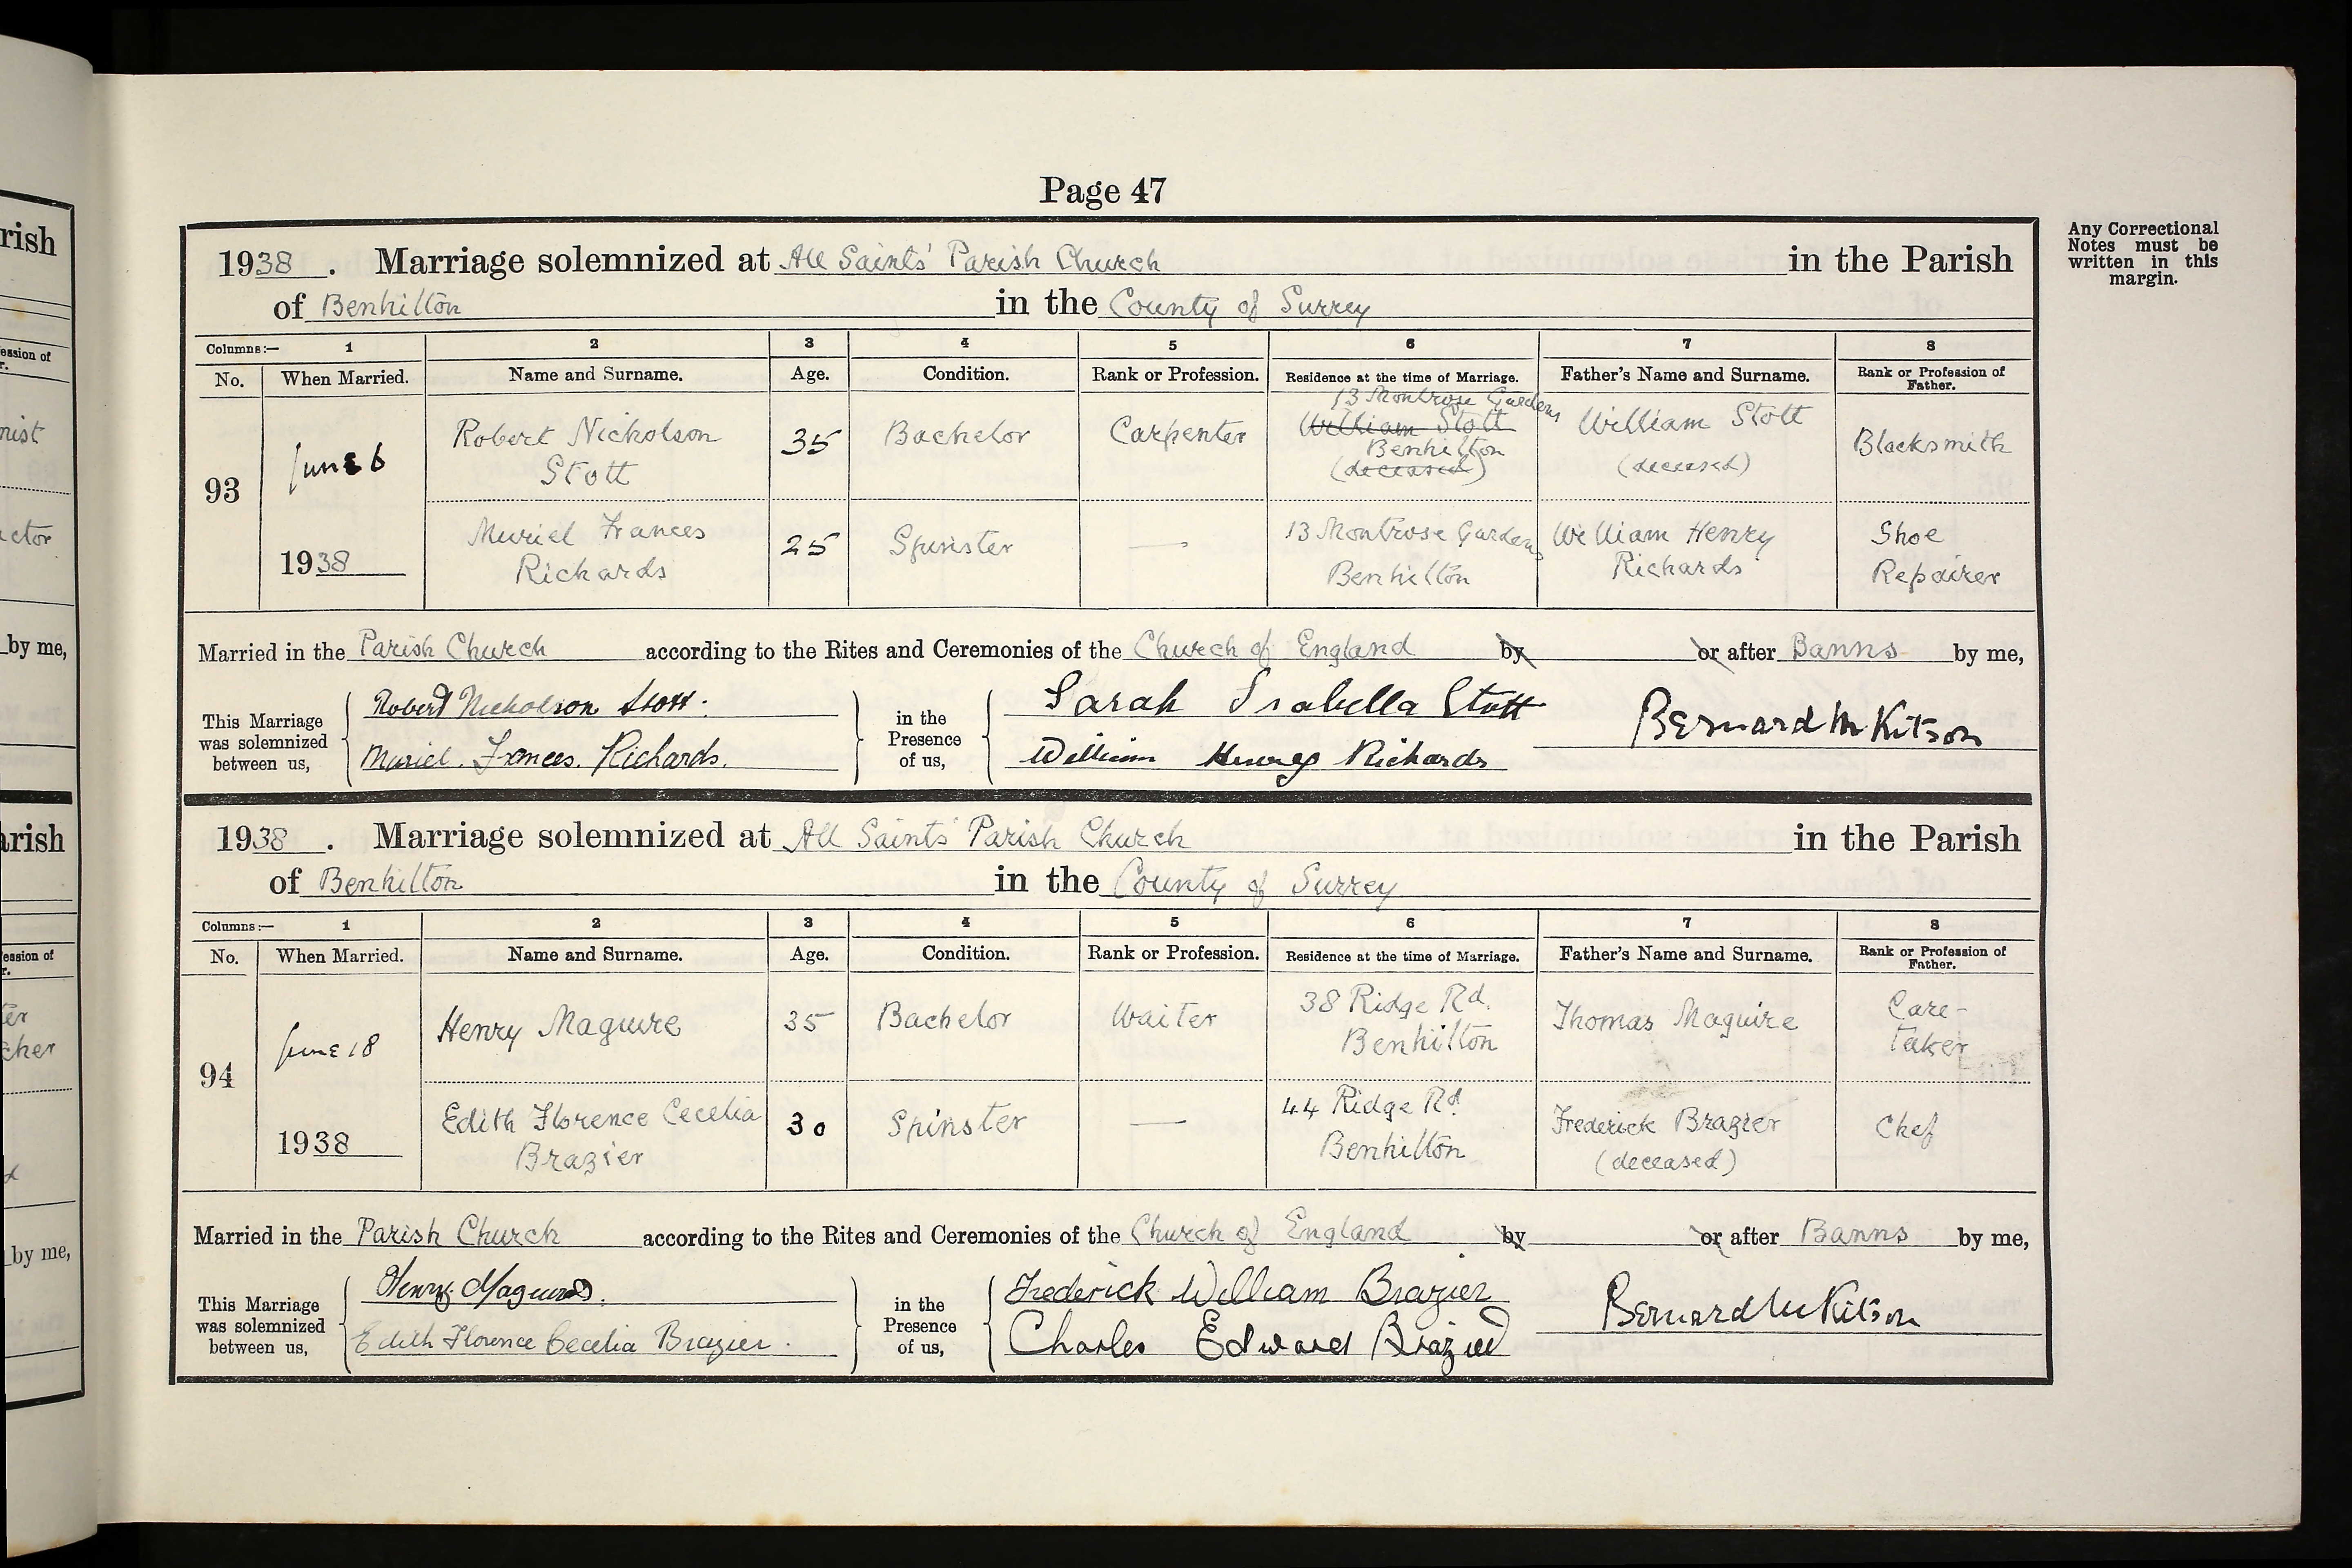 Page 47
Any Correctional
Notes must be
written in this
margin.
1938. Marriage solemnized at All Saints' Parish Church in the Parish
of Benhilton in the County of Surrey
Columns:— 1 2 3 4 5 6 7 8
No. When Married. Name and Surname. Age. Condition. Rank or Profession. Residence at the time of Marriage. Father's Name and Surname. Rank or Profession of Father.
93
June 6
1938
Robert Nicholson
Stott
35
Bachelor
Carpenter
13 Montrose Gardens
William Stott
Benhilton
(deceased)
William Stott
(deceased)
Blacksmith
Muriel Frances
Richards
25
Spinster
—
13 Montrose Gardens
Benhilton
William Henry
Richards
Shoe
Repairer
Married in the Parish Church according to the Rites and Ceremonies of the Church of England by or after Banns by me,
This Marriage
was solemnized
between us,
Robert Nicholson Stott.
Muriel. Frances. Richards.
in the
Presence
of us,
Sarah Isabella Stott
William Henry Richards
Bernard M Kitson
1938. Marriage solemnized at All Saints' Parish Church in the Parish
of Benhilton in the County of Surrey
Columns:— 1 2 3 4 5 6 7 8
No. When Married. Name and Surname. Age. Condition. Rank or Profession. Residence at the time of Marriage. Father's Name and Surname. Rank or Profession of Father.
94
June 18
1938
Henry Maguire
35
Bachelor
Waiter
38 Ridge Rd.
Benhilton
Thomas Maguire
Care-
taker
Edith Florence Cecelia
Brazier
30
Spinster
—
44 Ridge Rd.
Benhilton
Frederick Brazier
(deceased)
Chef
Married in the Parish Church according to the Rites and Ceremonies of the Church of England by or after Banns by me,
This Marriage
was solemnized
between us,
Henry Maguire.
Edith Florence Cecelia Brazier.
in the
Presence
of us,
Frederick William Brazier
Charles Edward Brazier
Bernard M Kitson
rish
ession of
r.
nist
ctor
by me,
arish
ession of
r.
ter
cher
by me,